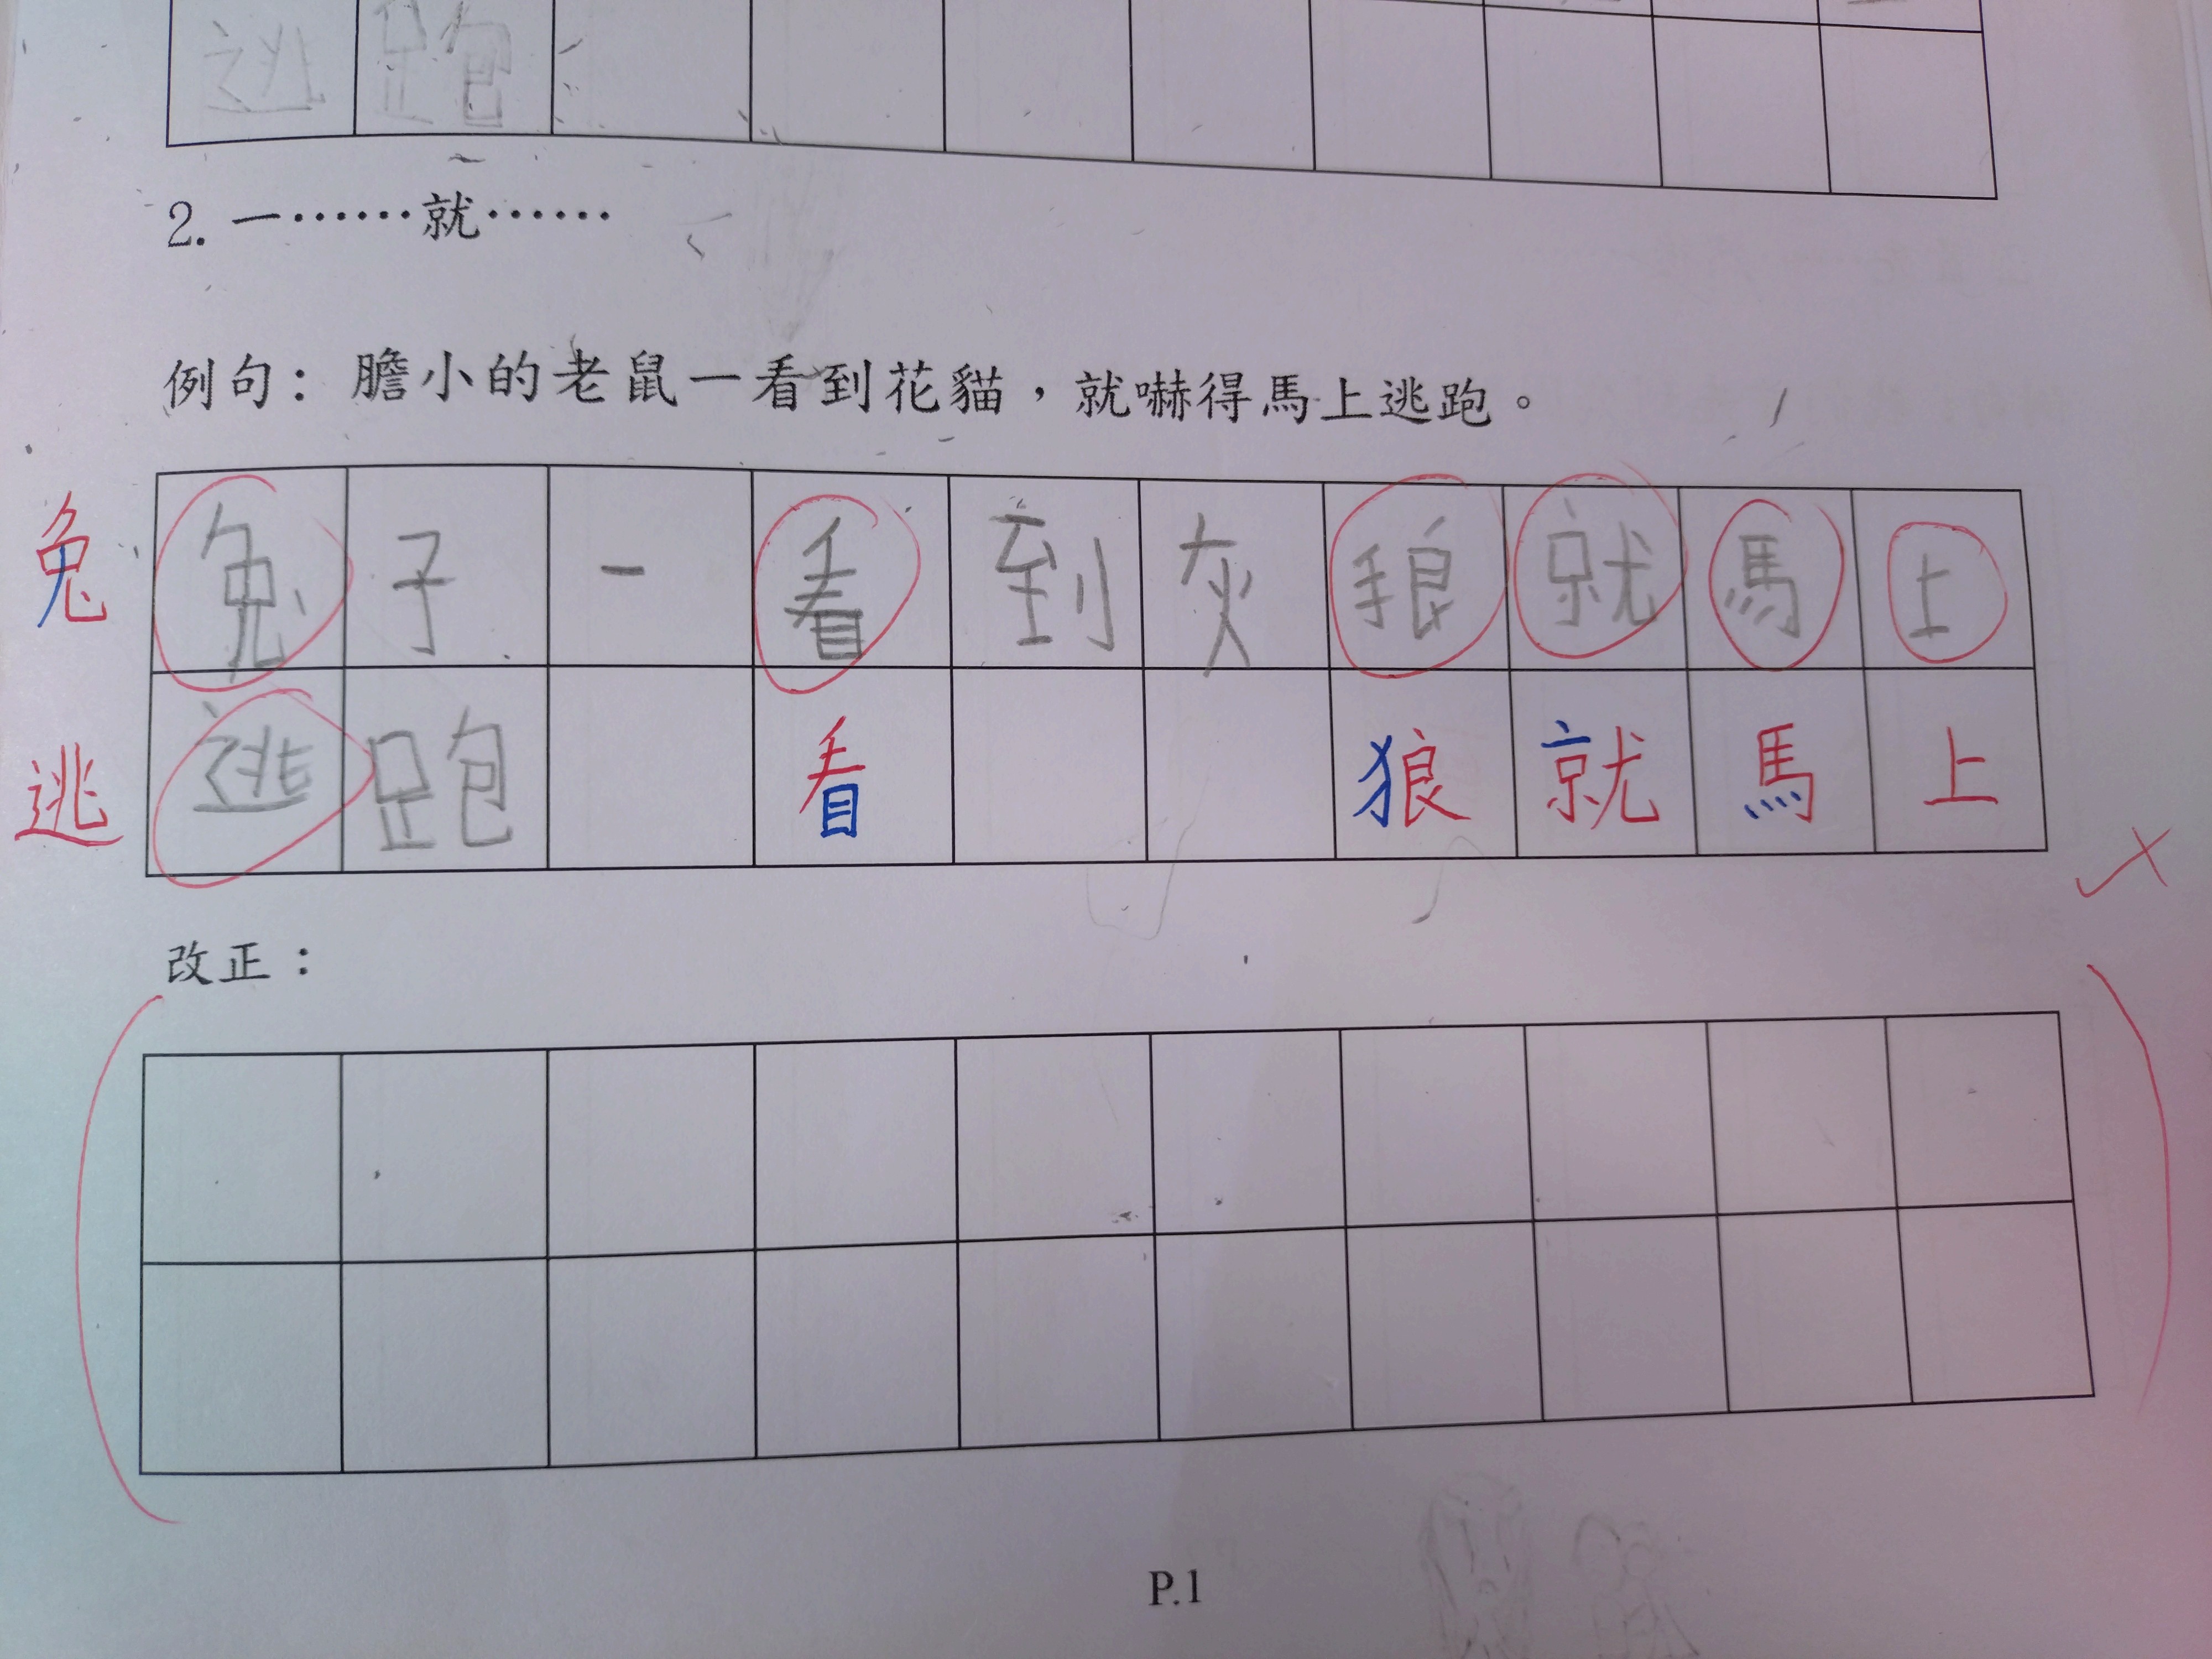 逃跑
2. 一……就……
例句：膽小的老鼠一看到花貓，就嚇得馬上逃跑。
兔 兔子一看到灰狼就馬上
逃 逃跑 看 狼就馬上
改正：
P.1